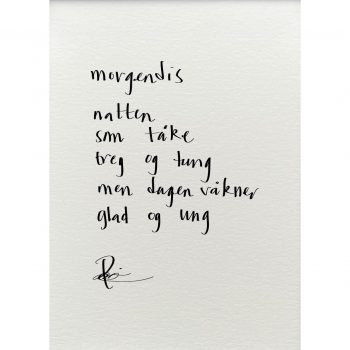 morgendis
natten
som tåke
treg og tung
men dagen våkner
glad og ung